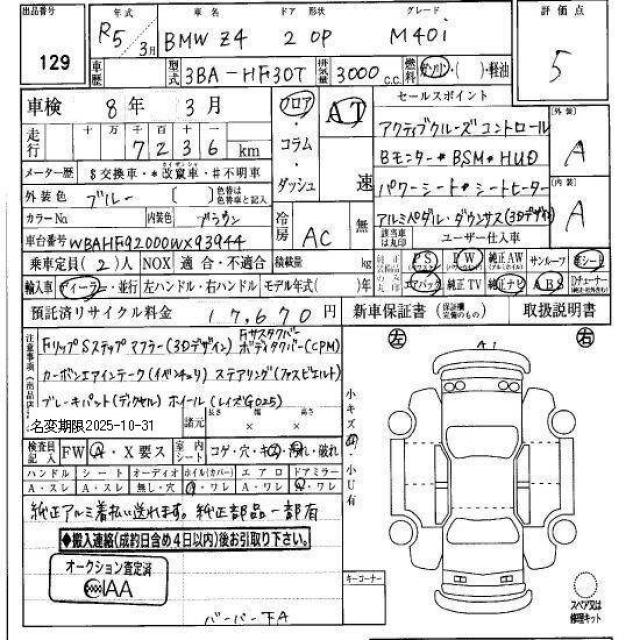 出品番号 年式 車名 ドア 形状 グレード 評価点
129 R5/3月 BMW Z4 2 OP M40i 5
車歴 型式 3BA-HF30T 排気量 3000 c.c. 燃料 ガソリン・( )・軽油
車検 8年 3月 フロア・コラム・ダッシュ AT 速 セールスポイント
走行 十万千百十一 7236 km
アクティブクルーズコントロール 外装 A
Bモニター*BSM*HUD
メーター歴 $交換車・*改竄車・#不明車
パワーシート*シートヒーター 内装 A
外装色 ブルー 〔 〕 色替は色替車名と記入
アルミペダル・ダウンサス(3Dデザイン)
カラーNo. 内装色 ブラウン 冷房 AC 無
該当車は丸印 ユーザー仕入車
車台番号 WBAHF92000WX93944
乗車定員(2)人 NOX 適合・不適合 積載量 kg
PS PW 純正AW サンルーフ 革シート
輸入車 ディーラー・並行 左ハンドル・右ハンドル モデル年式( )年
エアバック 純正TV 純正ナビ ABS Dチューナー
預託済リサイクル料金 17,670円 新車保証書 (保証欄完備のもの) 取扱説明書
注意事項(出品店)
FリップSステップマフラー(3Dデザイン) ボディカバー(CPM)
カーボンエアインテーク(イベンチュリ) ステアリング
ブレーキパット(ディクセル) ホイール(レイズG025)
名変期限2025-10-31 諸元 長さ × 幅 × 高さ
検査員記入 FW A・X要ス 室内シート コゲ・穴・キズ・汚れ・破れ
ハンドル シート オーディオ ホイル(カバー) エアロ ドアミラー
A・スレ A・スレ 無し・穴 A・ワレ A・ワレ A・ワレ
小キズ 小U有
純正アルミ着払い送れます。純正部品一部有
◆搬入連絡(成約日含め4日以内)後お引取り下さい。
オークション査定済
IAA
バーパー下A
キーコーナー
左 A1 右
スペア又は修理キット